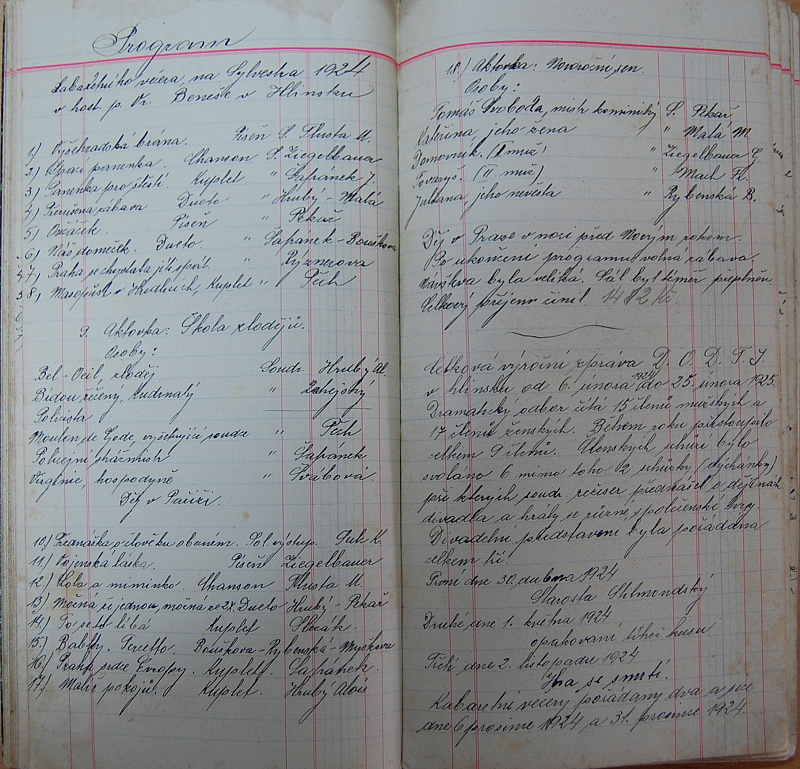 Program
Kabaretního večera, na Sylvestra 1924
v host. p. Benеše v Hlinsku
1) Vyšehradská brána. Píseň S. Šlusta M.
2) panenka. Chanson S. Ziegelbauer
3) Panenka pro štěstí Kuplet " Šafranek J.
4) Přerušená zábava Dueto " Hrubý - Malá
5) Ovčáček. Píseň " Pekař
6) Náš domeček. Dueto. " Šafranek - Boušková
7) Praha se chystala jít spát. " Rýznerova
8) Masopust v Kuplet " Pech
9. Aktovka: Škola zlodějů.
Osoby:
Bel - Ocil, zloděj Soudr. Hrubý Al.
Bidon řečený, Kudrnatý " Zahejský
Policista
Moulon de Gode, vyšetřující soudce " Pech
Policejní strážmistr " Šafranek
Virginie, hospodyně " Švábová.
Děj v Paříži.
10) Přednáška o člověku obecném. Sol. výstup. K.
11.) Vojenská láska. Píseň Ziegelbauer
12) Kola a miminko. Chanson Šlusta M.
13) Možná ži jednou, možná že 2x. Dueto Hrubý - Pekař
14) To se to líbá Kuplet
15.) Babky. Terzetto. Boušková - Rybenská - Myšková
16.) Praha prdle Evropy. Kuplet. Šafránek
17.) Malíř pokojů. Kuplet. Hrubý Alois
18.) Aktovka: Novoroční sen.
Osoby:
Tomáš Svoboda, mistr kominický S. Pekař
Kateřina, jeho žena " Malá M.
Domovník. (I muž) " Ziegelbauer
Tovaryš. (II muž) " H.
Juliana, jeho nevěsta " Rybenská B.
Děj v Praze v noci před Novým rokem.
Po ukončení programu volna zabava.
Návštěva byla veliká. Sál byl téměř přeplněn
Celkový příjem činil 1482 Kč
Celková výroční zpráva D. O. D. T. J
v Hlinsku od 6. února 1924 do 25. února 1925.
Dramatický odbor čítá 15 členů mužských a
17 členů ženských. Během roku přistoupilo
celkem 9 členů. Členských schůzí bylo
svoláno 6 mimo toho 12 schůzky (dýchánky)
při kterých soudr. režiser přednášel o dějinách
divadla a hrály se různé, společenské hry.
Divadelní představení byla pořáddána
celkem tři.
První dne 30. dubna 1924
Starosta Stilmondský
Druhé dne 1. května 1924
opatrování kusu
Třetí dne 2. listopadu 1924
Hra se smrtí.
Kabaretní večery pořádany dva a sice
dne 6 prosince 1924 a 31. prosince 1924.